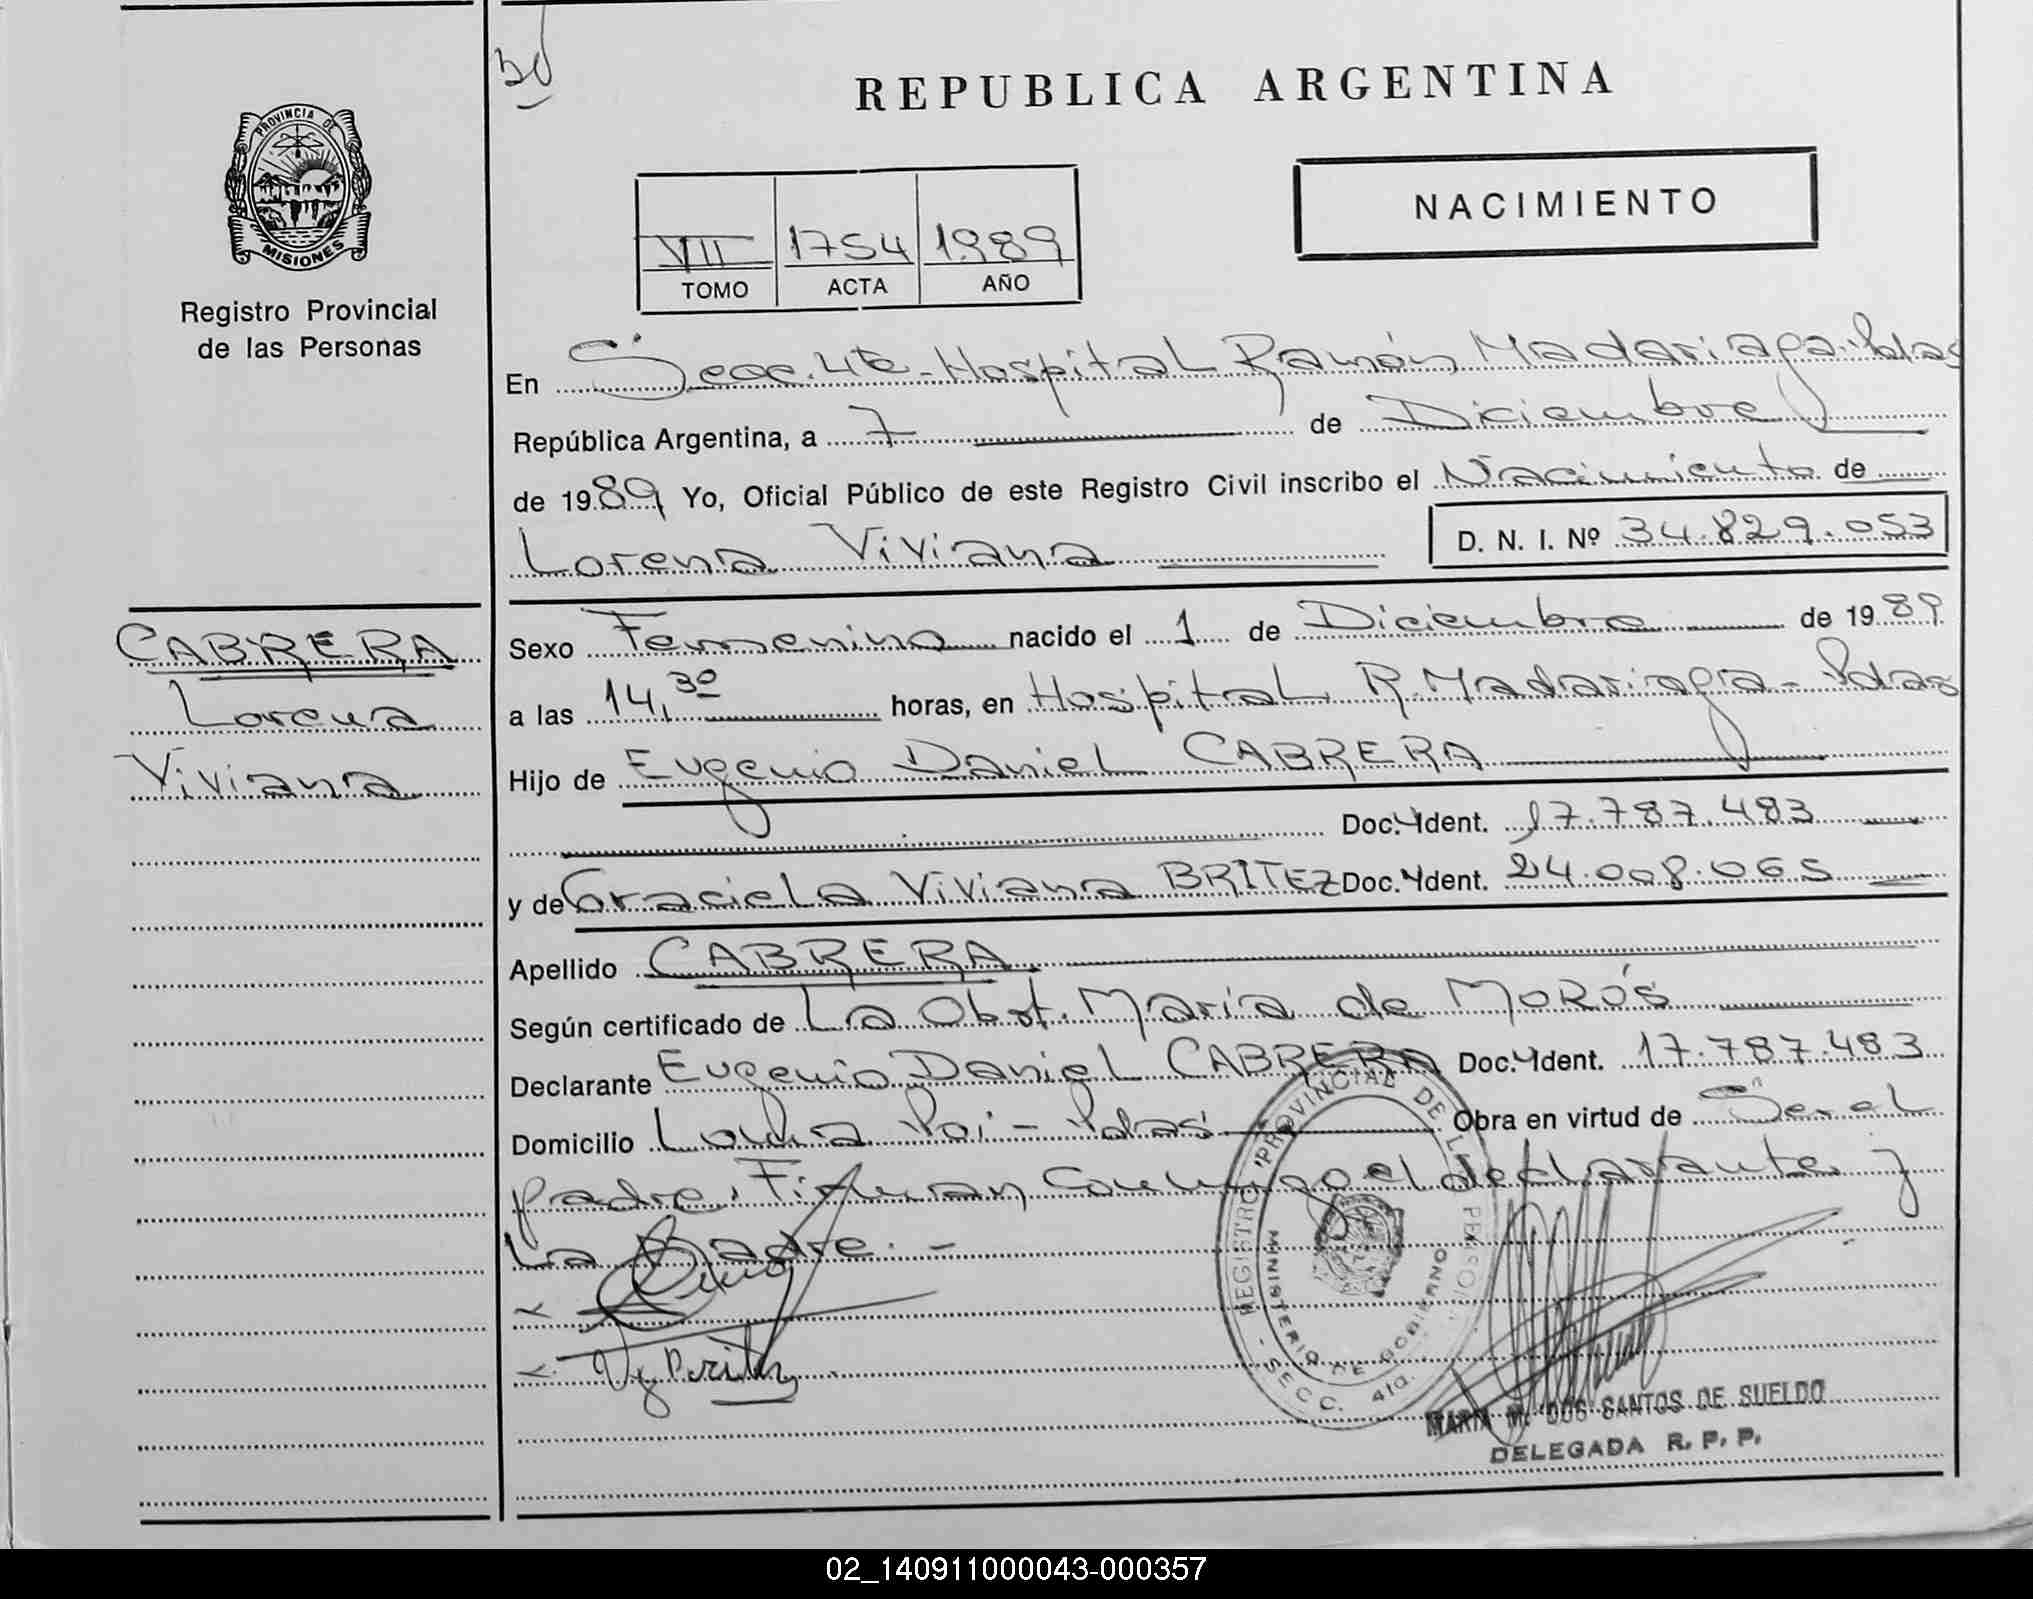 30
REPUBLICA ARGENTINA
PROVINCIA DE
MISIONES
Registro Provincial
de las Personas
NACIMIENTO
VII 1754 1989
TOMO ACTA AÑO
En Secc. 4ta - Hospital Ramón Madariaga - Pdas
República Argentina, a 7 de Diciembre
de 1989 Yo, Oficial Público de este Registro Civil inscribo el Nacimiento de
Lorena Viviana D. N. I. Nº 34.829.053
CABRERA
Lorena
Viviana
Sexo Femenino nacido el 1 de Diciembre de 1989
a las 14,30 horas, en Hospital R. Madariaga - Pdas
Hijo de Eugenio Daniel CABRERA
Doc. Ident. 17.787.483
y de Graciela Viviana BRITEZ Doc. Ident. 24.008.065
Apellido CABRERA
Según certificado de La Obst. María de MORÓS
Declarante Eugenio Daniel CABRERA Doc. Ident. 17.787.483
Domicilio Loma Poi - Pdas Obra en virtud de Ser el
padre. Firman conmigo el declarante y
la Madre. -
REGISTRO PROVINCIAL DE LAS PERSONAS
MINISTERIO DE GOBIERNO
- SECC. 4ta.
MARIA M. DOS SANTOS DE SUELDO
DELEGADA R. P. P.
02_140911000043-000357